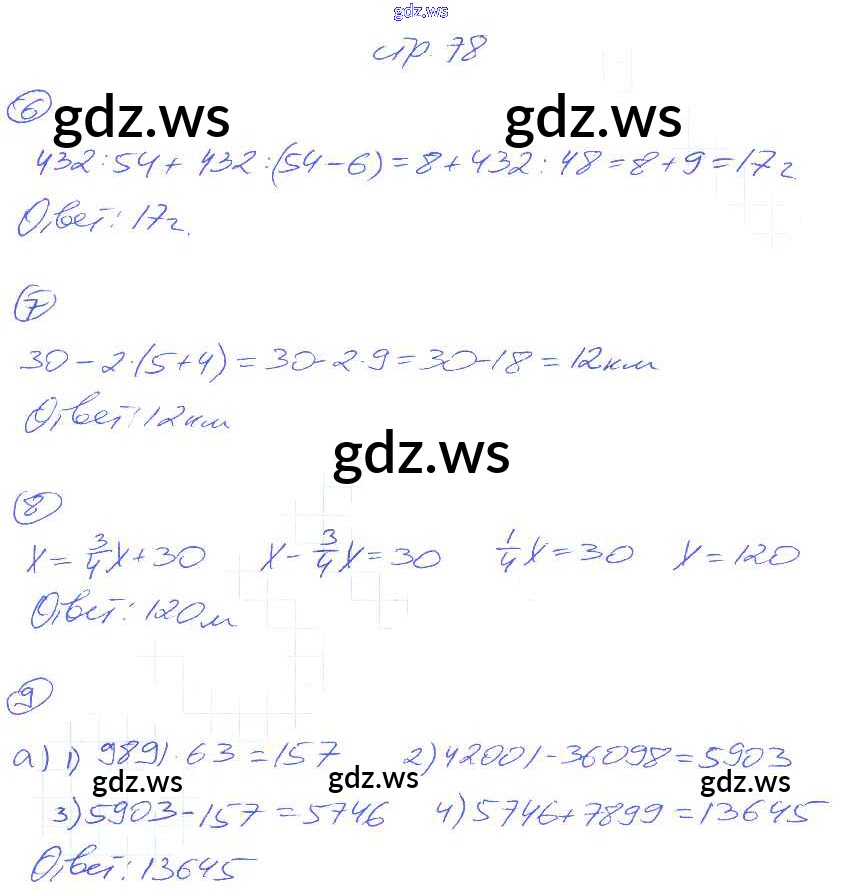 gdz.ws
стр. 78
6
gdz.ws gdz.ws
432:54+ 432:(54-6)=8+432:48=8+9=17г.
Ответ: 17г.
7
30-2·(5+4)=30-2·9=30-18=12км
Ответ: 12км
gdz.ws
8
x=3/4x+30 x-3/4x=30 1/4x=30 x=120
Ответ: 120м
9
а) 1) 9891:63=157 2) 42001-36098=5903
gdz.ws gdz.ws gdz.ws
3) 5903-157=5746 4) 5746+7899=13645
Ответ: 13645